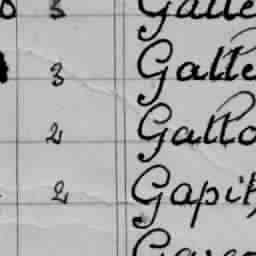 3 Galle
3 Galle
2 Gallo
2 Gapit